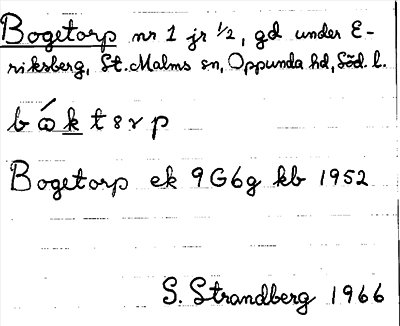 Bogetorp nr 1 jr ½, gd under E-
riksberg, St. Malms sn, Oppunda hd, Söd. l.
Bogetorp ek 9G6g kb 1952
S. Strandberg 1966